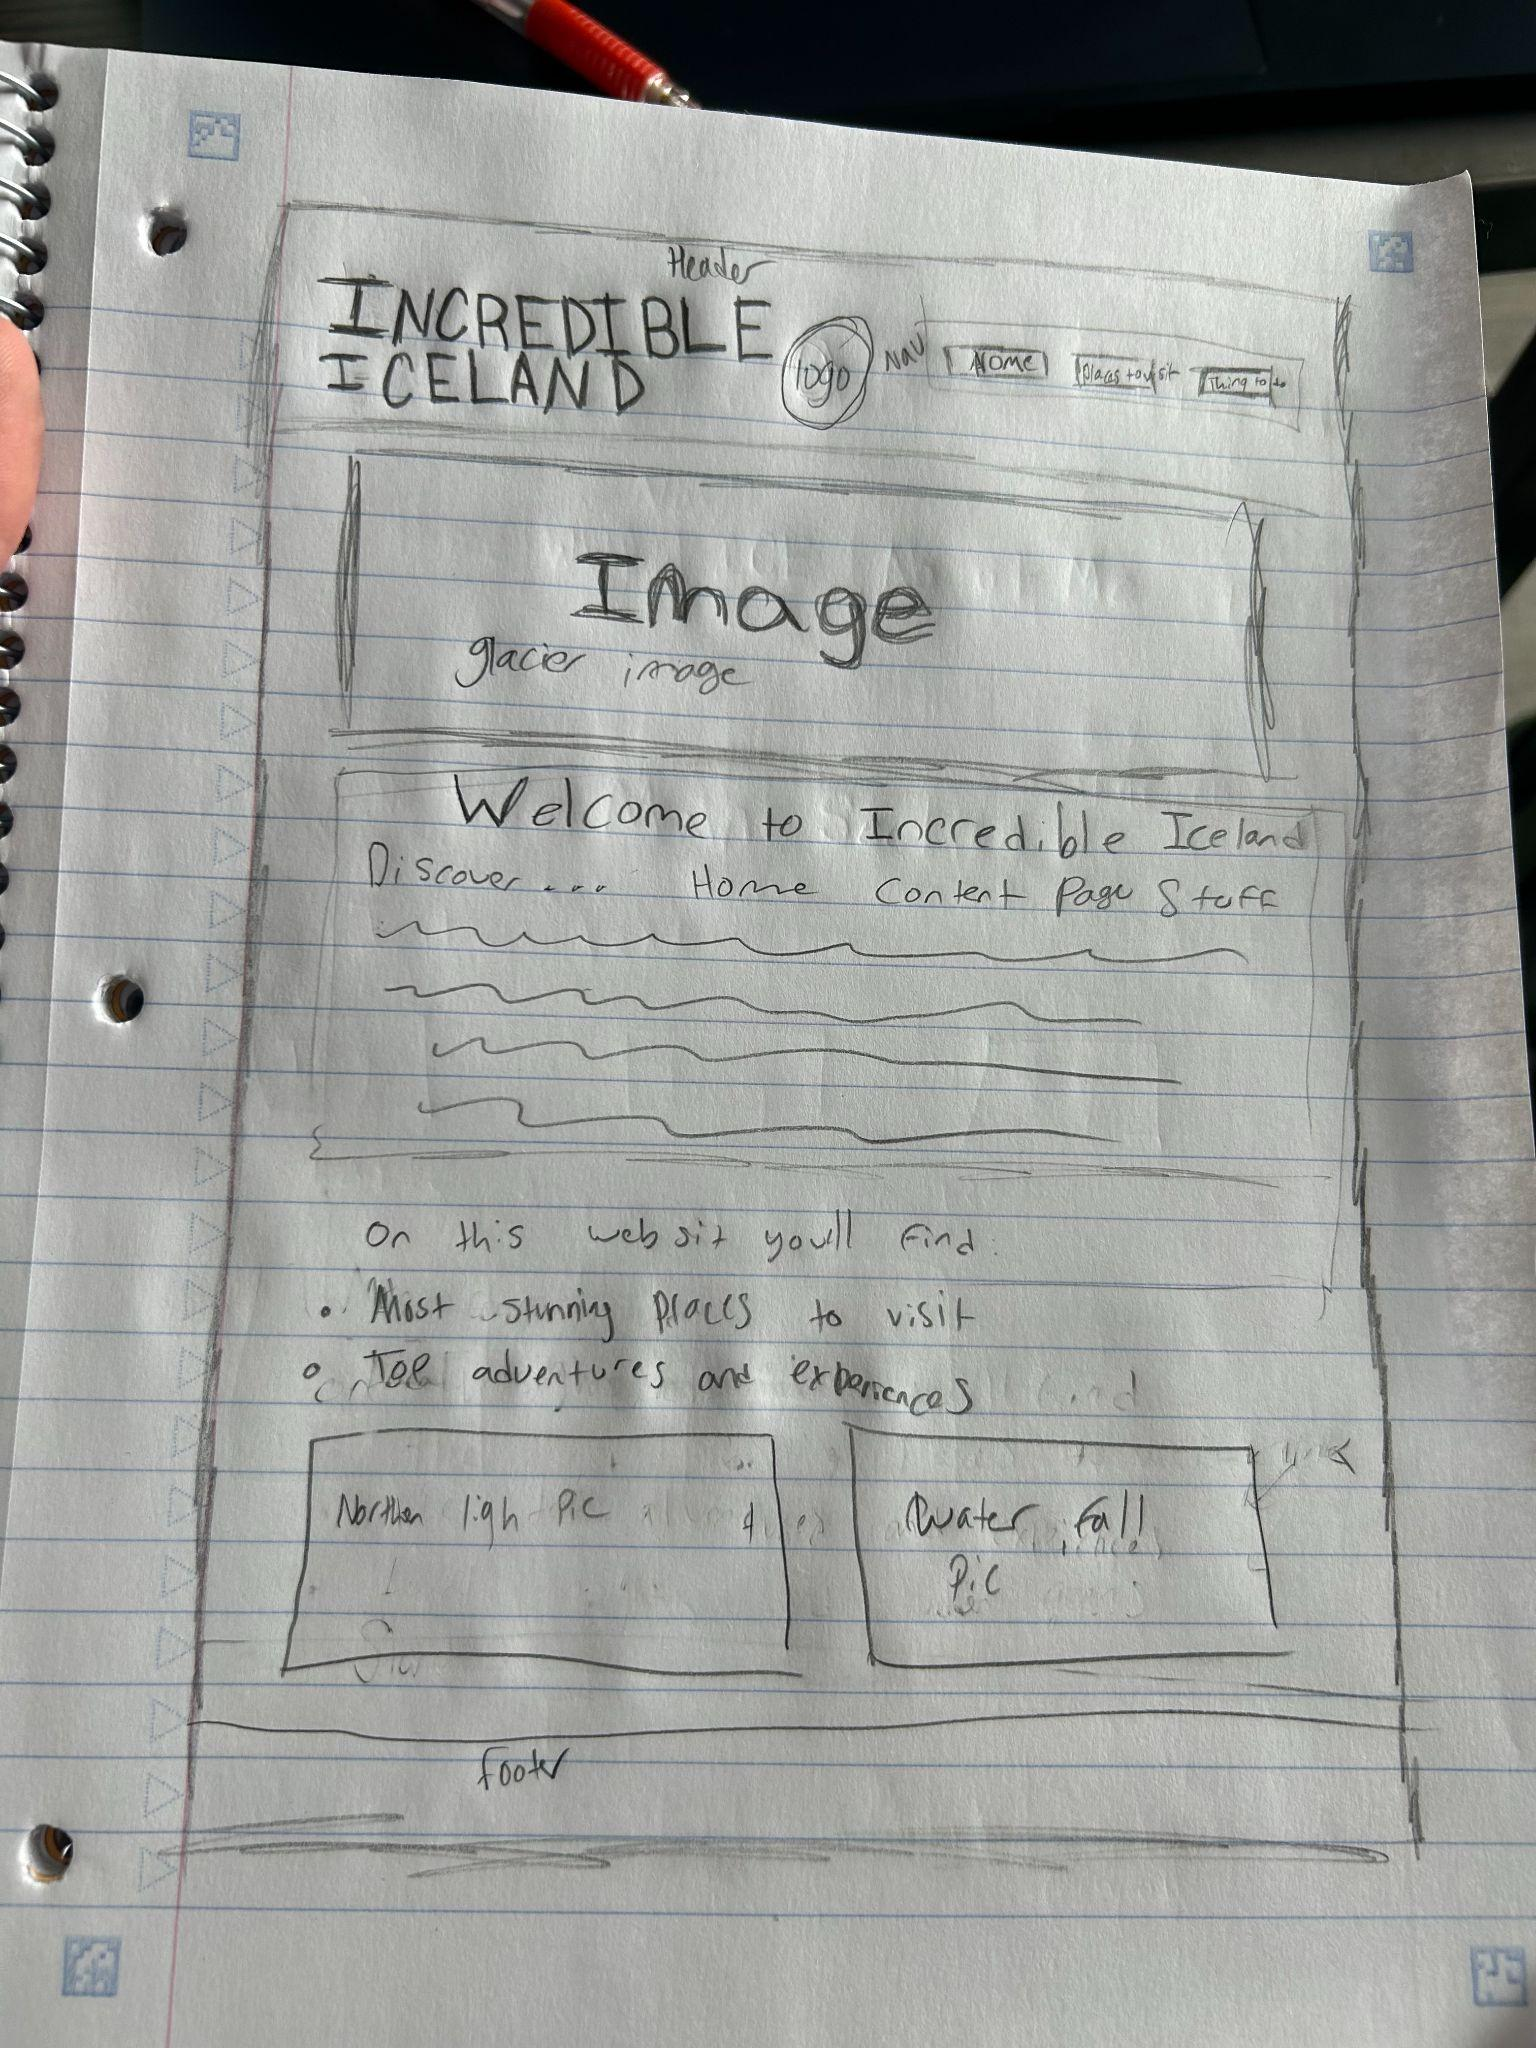 Header
INCREDIBLE
ICELAND
logo
Nav
Home
places to visit
Thing to do
Image
glacier image
Welcome to Incredible Iceland
Discover... Home Content Page Stuff
On this websit you'll find:
• Most stunning places to visit
• Top adventures and experiences
Northen ligh Pic
Water fall
Pic
footer